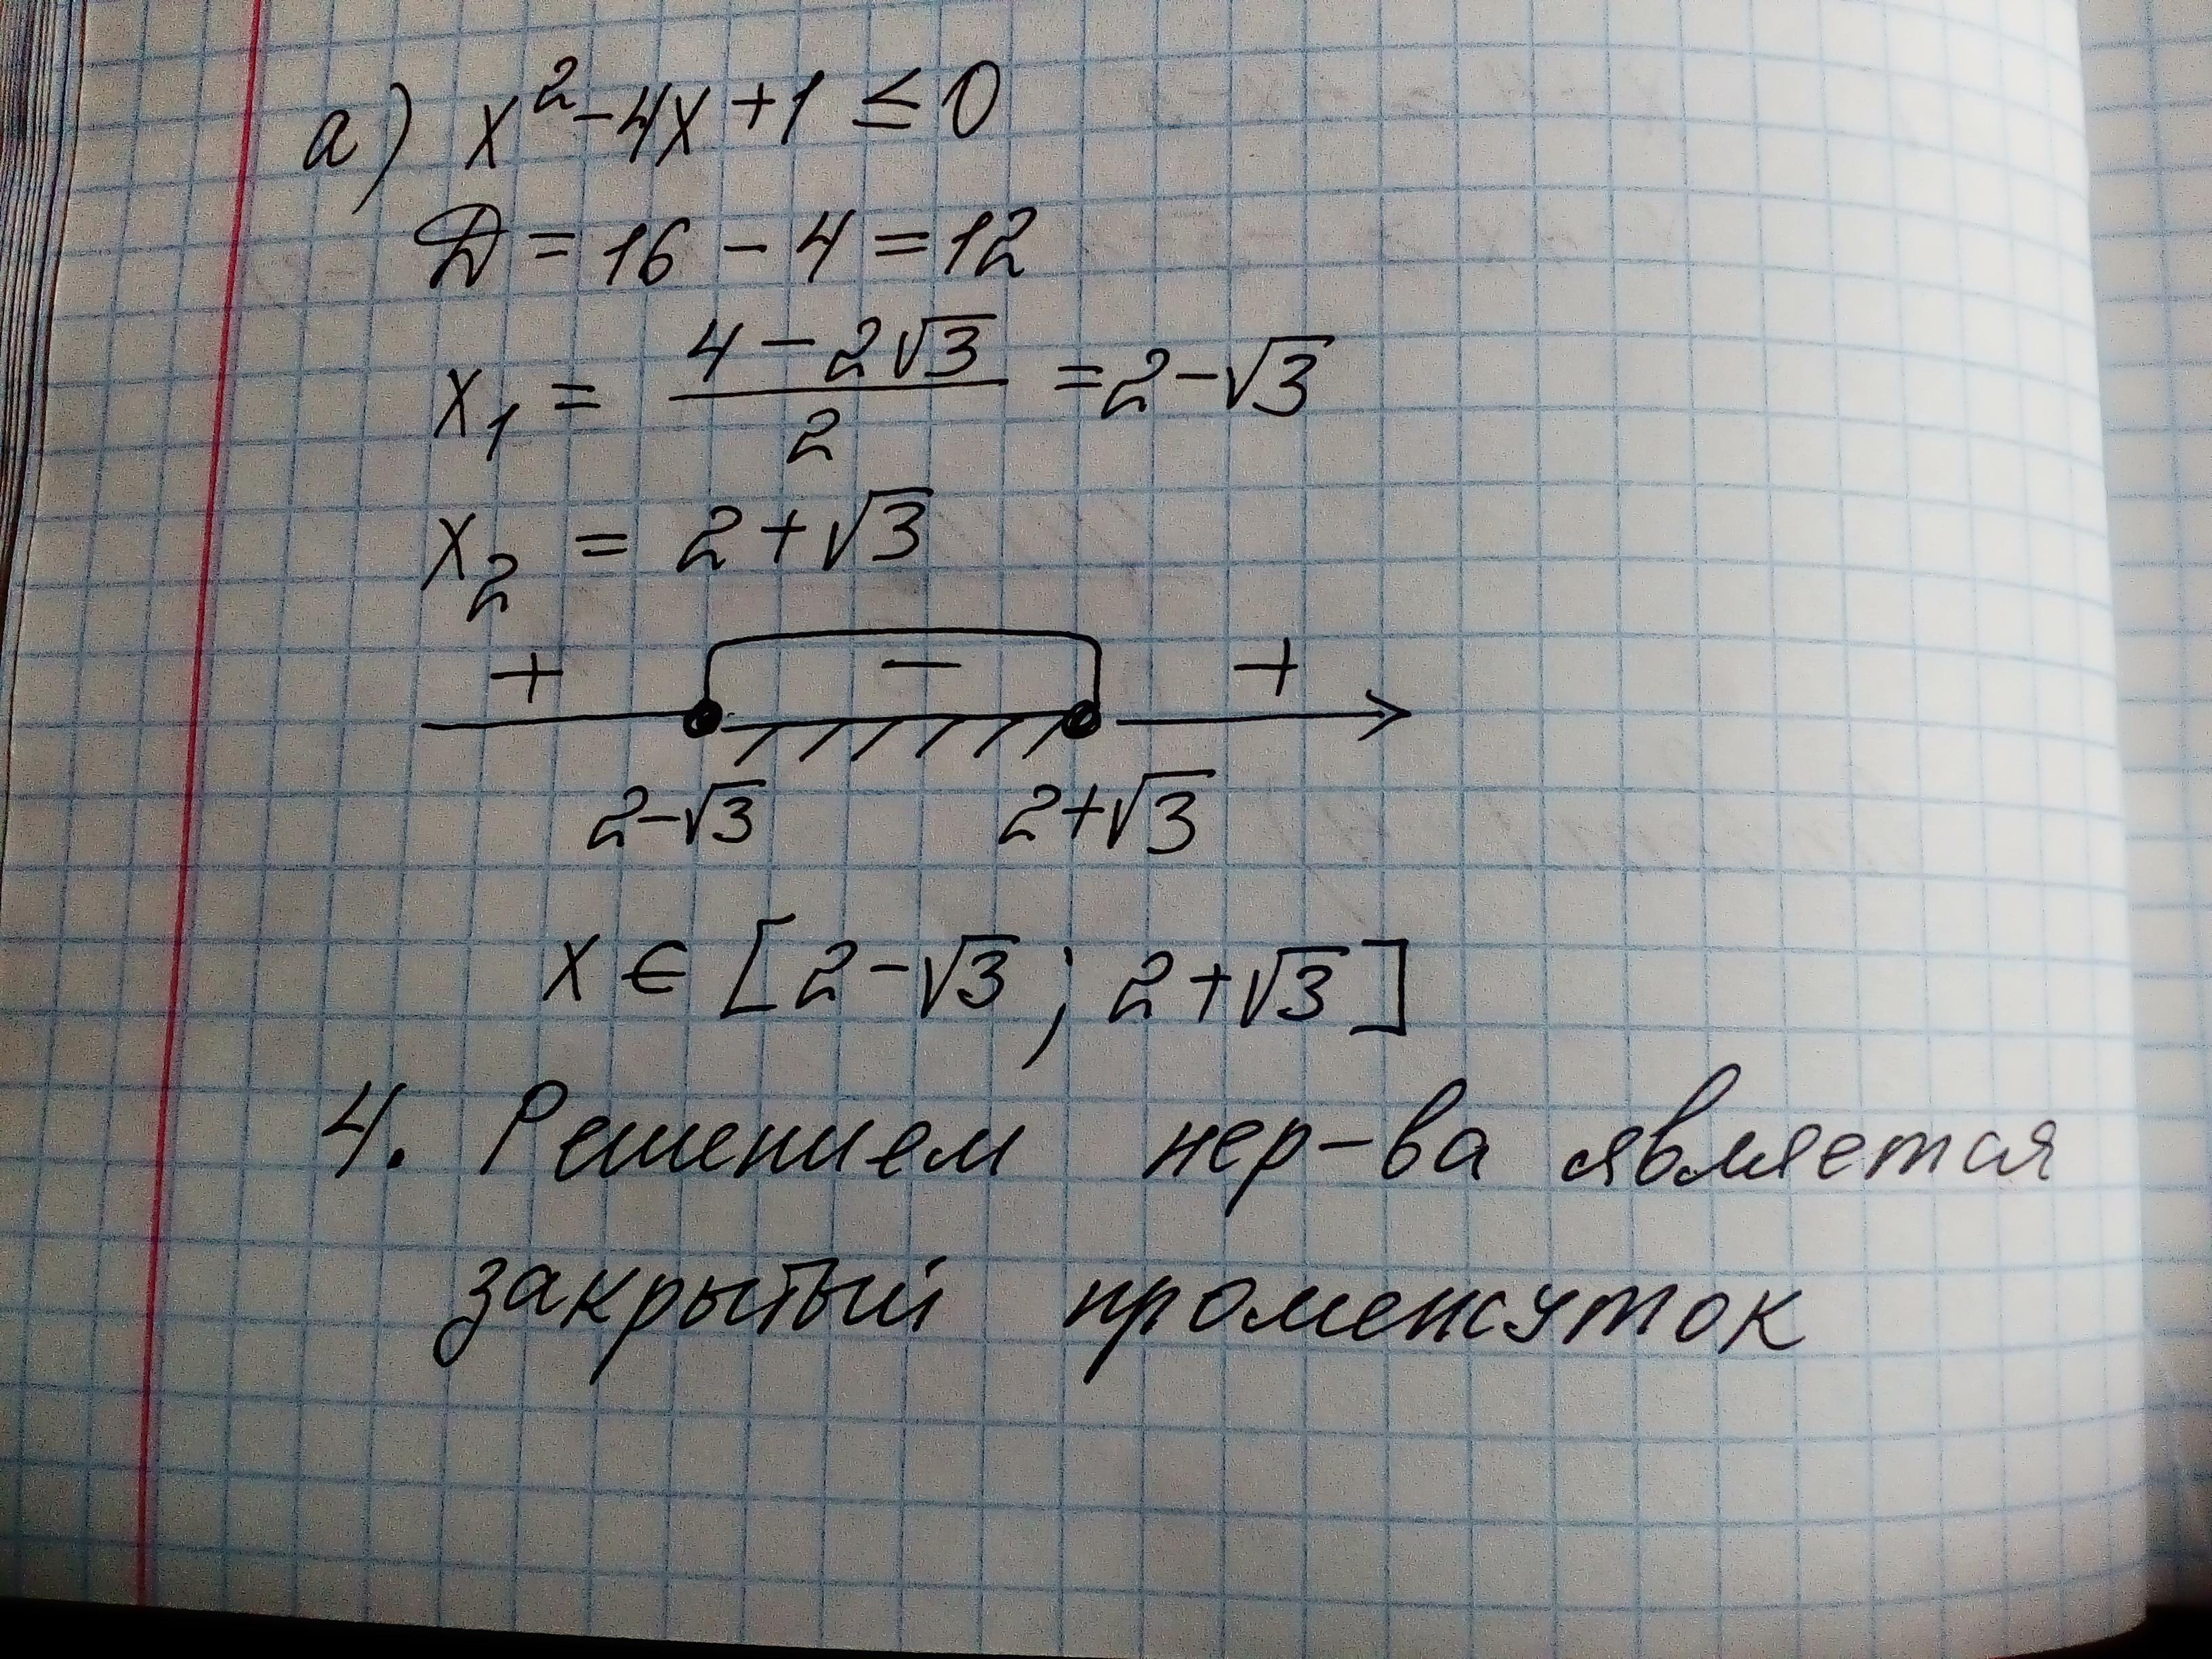 а) x² - 4x + 1 ≤ 0
D = 16 - 4 = 12
x₁ = (4 - 2√3)/2 = 2 - √3
x₂ = 2 + √3
+ − +
2-√3 2+√3
x ∈ [2-√3 ; 2+√3]
4. Решением нер-ва является
закрытый промежуток